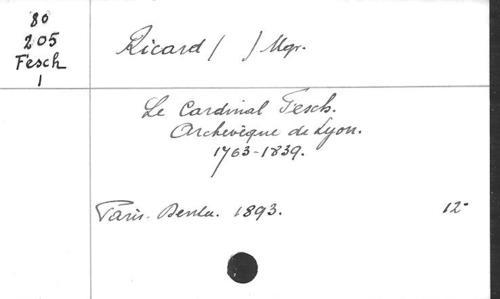 80
205
Fesch
1
Ricard / / Mgr.
Le Cardinal Fesch.
Archevêque de Lyon.
1763-1839.
Paris. Dentu. 1893.
12°